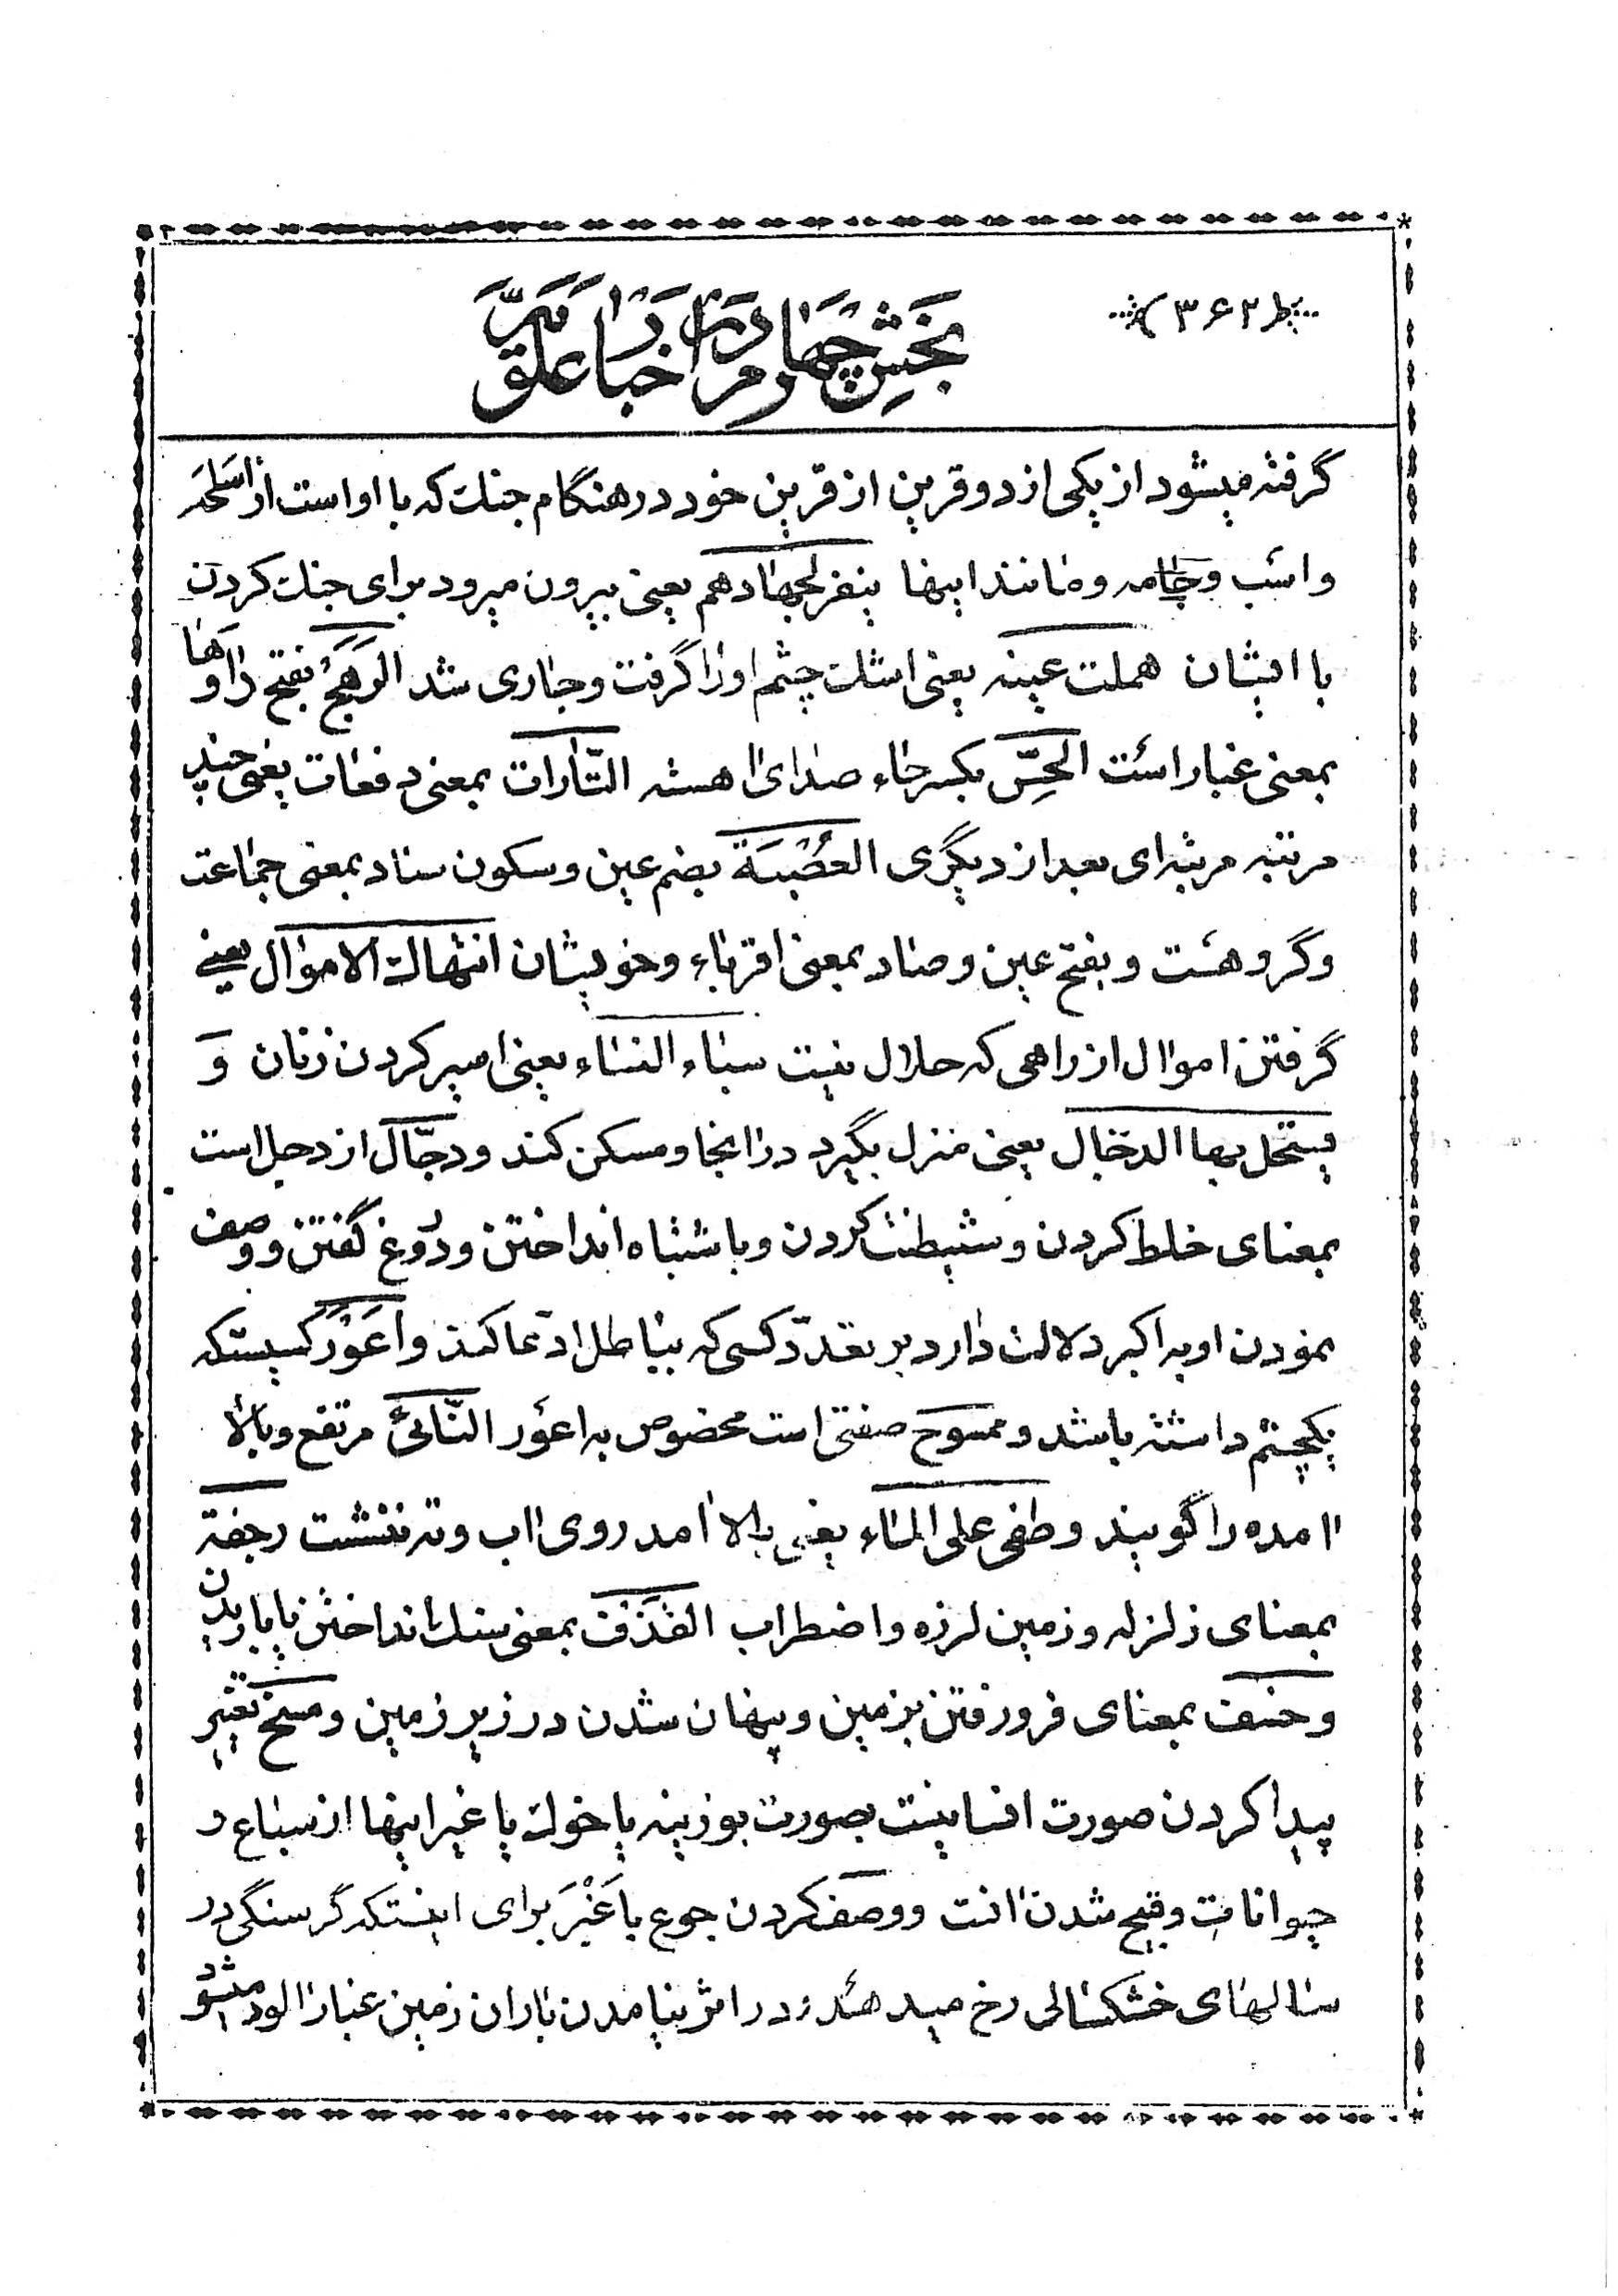 ۳۶۲
بخش چهارم در اخبار
گرفته میشود از یکی از دو قرین از قرین خود در هنگام جنك که با او است از اسلحه
و اسب و جامه و مانند اینها ینفر لجهادهم یعنی بیرون میرود برای جنك کردن
با ایشان هملت عینه یعنی اشك چشم او را گرفت و جاری شد الوهج بفتح واو و ها
بمعنی غبار است الحِسّ بکسر حاء صدای اهسته التّارات بمعنی دفعات یعنی چند
مرتبه مرتبه‌ای بعد از دیگری العُصْبَة بضم عین و سکون صاد بمعنی جماعت
و گروهست و بفتح عین و صاد بمعنی اقرباء و خویشان انتهاك الاموال یعنی
گرفتن اموال از راهی که حلال نیست سباء النساء یعنی اسیر کردن زنان و
یستحل بها الدجال یعنی منزل بگیرد در انجا و مسکن کند و دجّال از دجل است
بمعنای خلط کردن و شیطنت کردن و باشتباه انداختن و دروغ گفتن و وصف
نمودن او به اکبر دلالت دارد بر تعدّد کسی که بباطل ادّعا کند و اَعْوَر کسیستکه
یکچشم داشته باشد و ممسوح صفتی است مخصوص به اعور النّاتئ مرتفع و بالا
امده را گویند و طفی علی الماء یعنی بالا امد روی اب و ته ننشست رجفة
بمعنای زلزله و زمین لرزه و اضطراب القذف بمعنی سنك انداختن یا باریدن
و خسف بمعنای فرو رفتن بزمین و پنهان شدن در زیر زمین و مسخ تغییر
پیدا کردن صورت انسانیت بصورت بوزینه یا خوك یا غیر اینها از سباع و
حیوانات و قبیح شدن انت و وصف کردن جوع با غَبَر برای اینستکه گرسنگی در
سالهای خشکسالی رخ میدهد در اثر نیامدن باران زمین غبار الود میشود